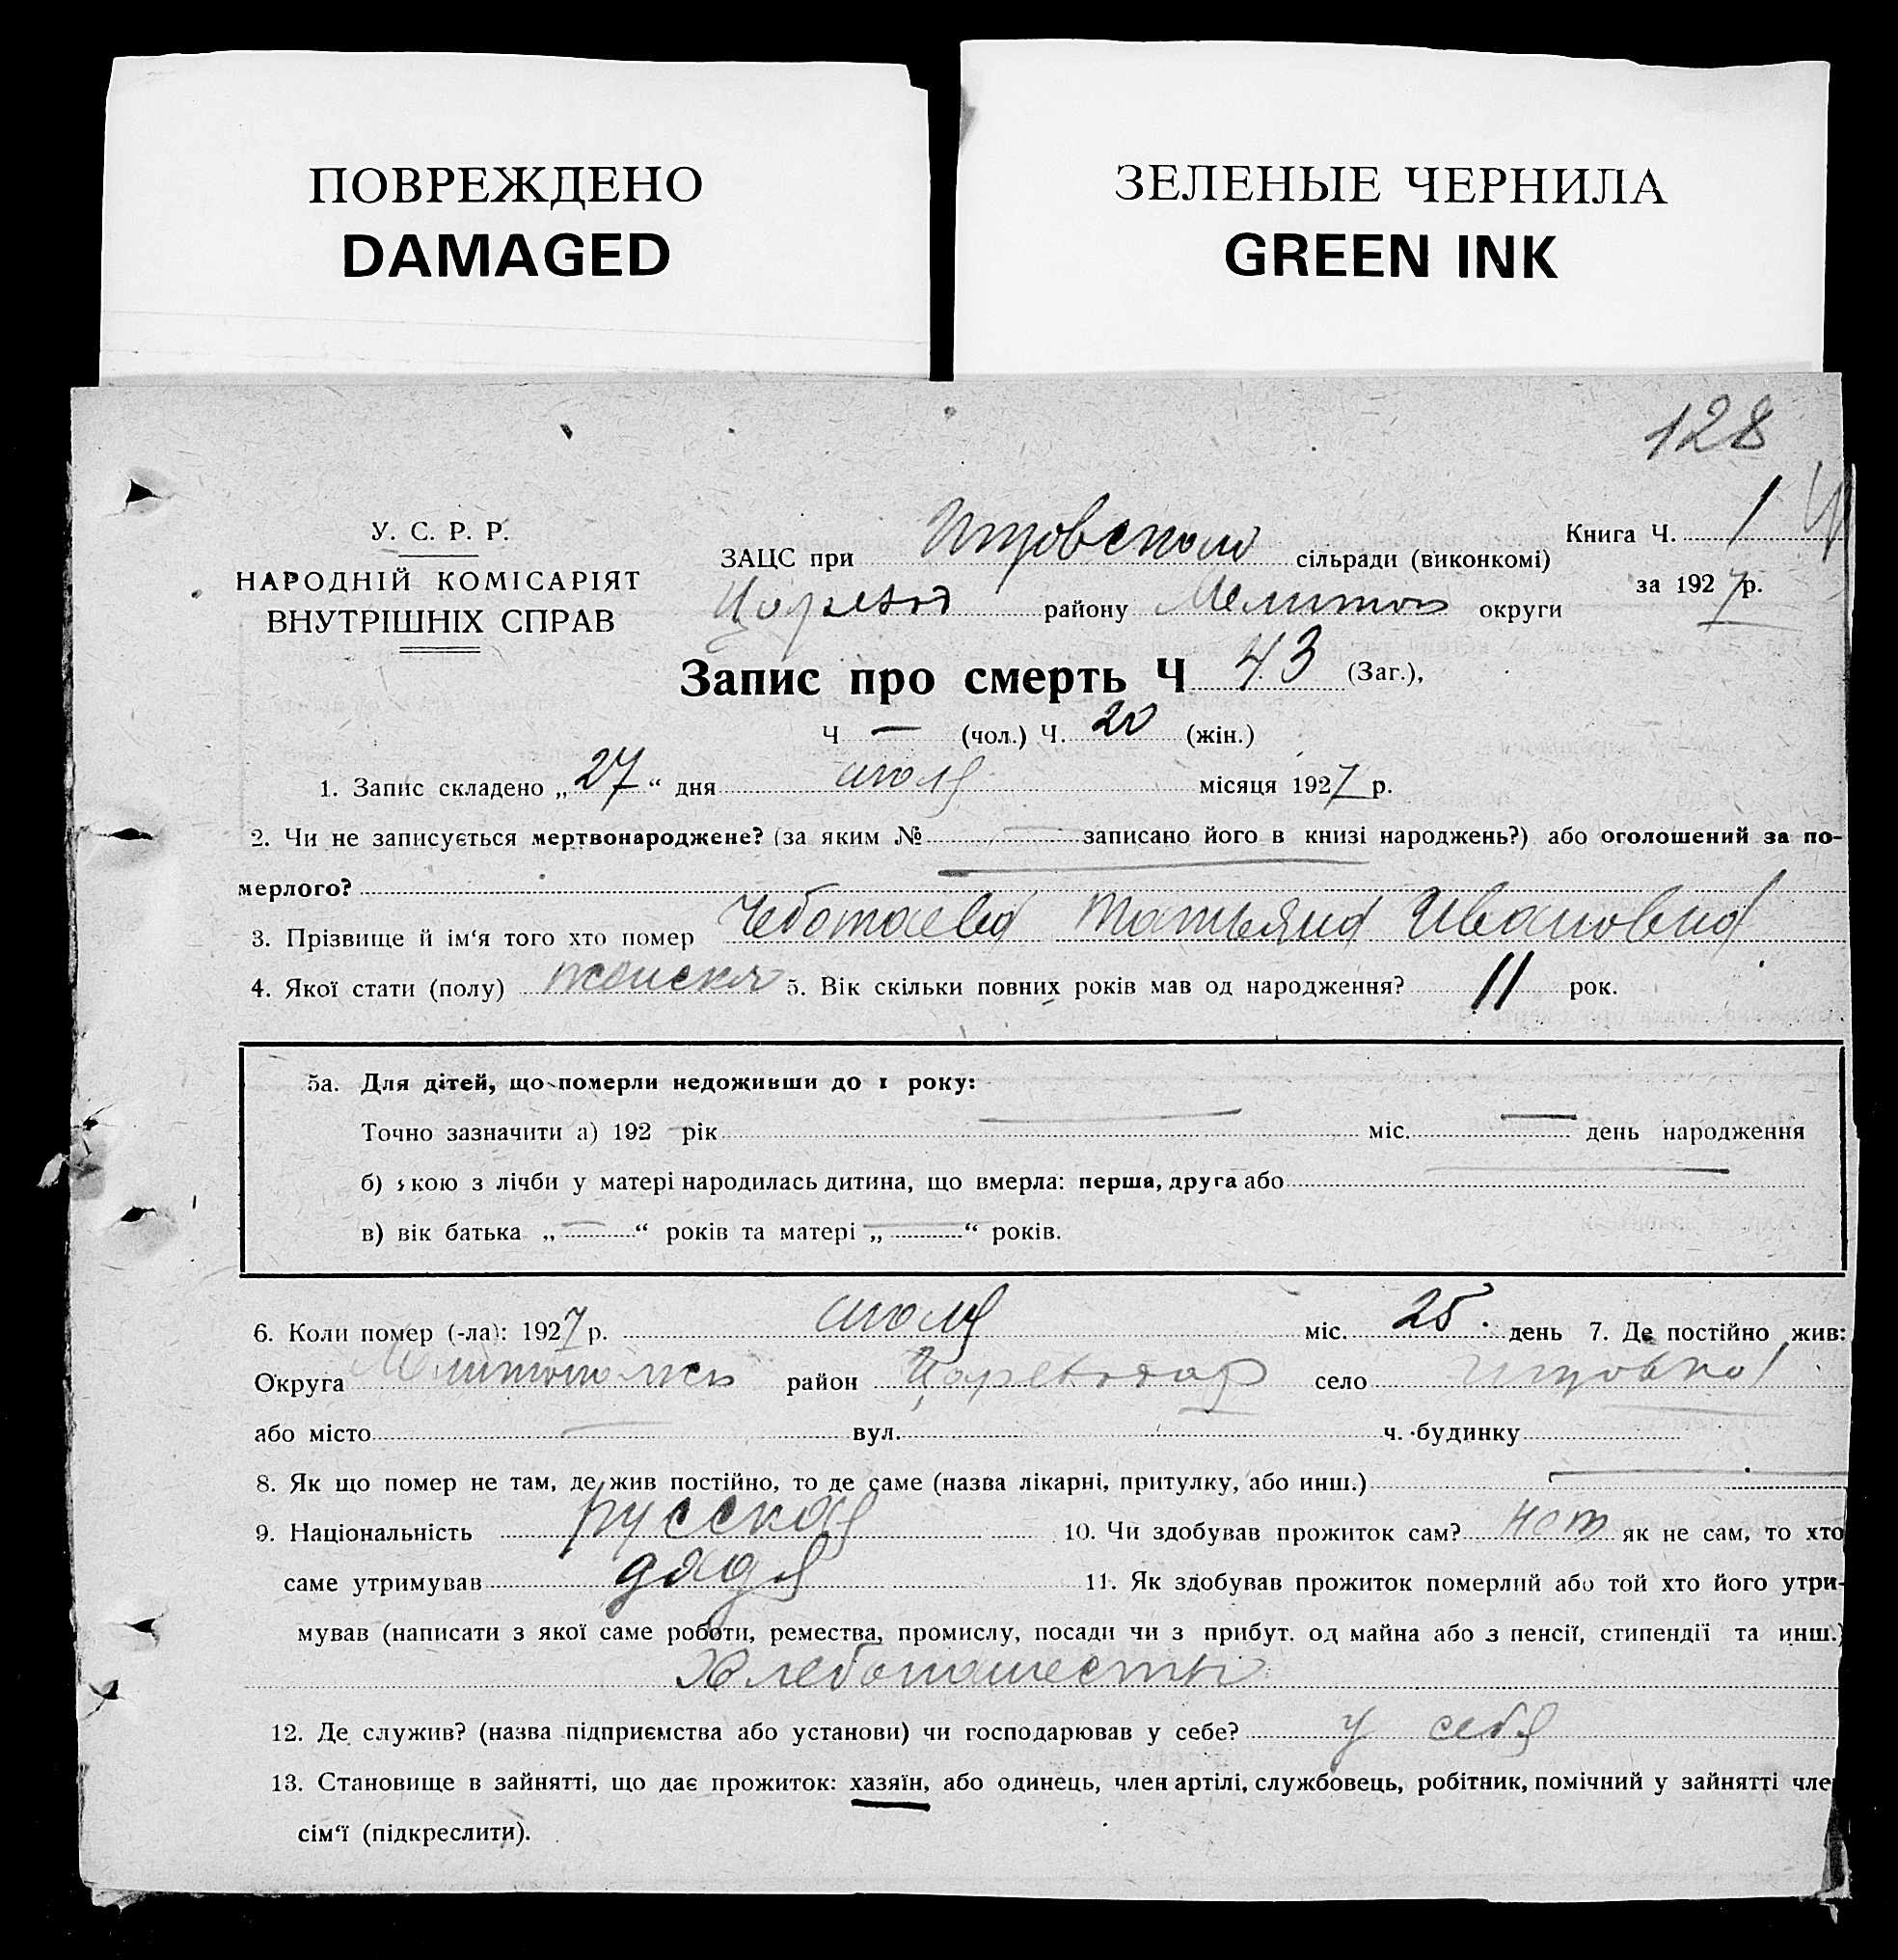 ПОВРЕЖДЕНО
DAMAGED
ЗЕЛЕНЫЕ ЧЕРНИЛА
GREEN INK
128
У. С. Р. Р.
НАРОДНІЙ КОМІСАРІЯТ
ВНУТРІШНІХ СПРАВ
Книга Ч. 1
за 1927 р.
ЗАЦС при сільради (виконкомі)
району округи
Запис про смерть Ч 43 (Заг.),
Ч — (чол.) Ч. 20 (жін.)
1. Запис складено „27“ дня июля місяця 1927 р.
2. Чи не записується мертвонароджене? (за яким № — записано його в книзі народжень?) або оголошений за по-
мерлого? —
3. Прізвище й ім‘я того хто помер Татьяна Ивановна
4. Якої стати (полу) женская 5. Вік скільки повних років мав од народження? 11 рок.
5а. Для дітей, що померли недоживши до 1 року:
Точно зазначити а) 192 рік — міс. — день народження
б) якою з лічби у матері народилась дитина, що вмерла: перша, друга або —
в) вік батька „—“ років та матері „—“ років.
6. Коли помер (-ла): 1927 р. июля міс. 25 день 7. Де постійно жив:
Округа район село
або місто — вул. ч. будинку
8. Як що помер не там, де жив постійно, то де саме (назва лікарні, притулку, або инш.) —
9. Національність русская 10. Чи здобував прожиток сам? нет як не сам, то хто
саме утримував дядя 11. Як здобував прожиток померлий або той хто його утри-
мував (написати з якої саме роботи, ремества, промислу, посади чи з прибут. од майна або з пенсії, стипендії та инш.)
12. Де служив? (назва підприємства або установи) чи господарював у себе? у себя
13. Становище в зайнятті, що дає прожиток: хазяїн, або одинець, член артілі, службовець, робітник, помічний у зайнятті чле
сім‘ї (підкреслити).